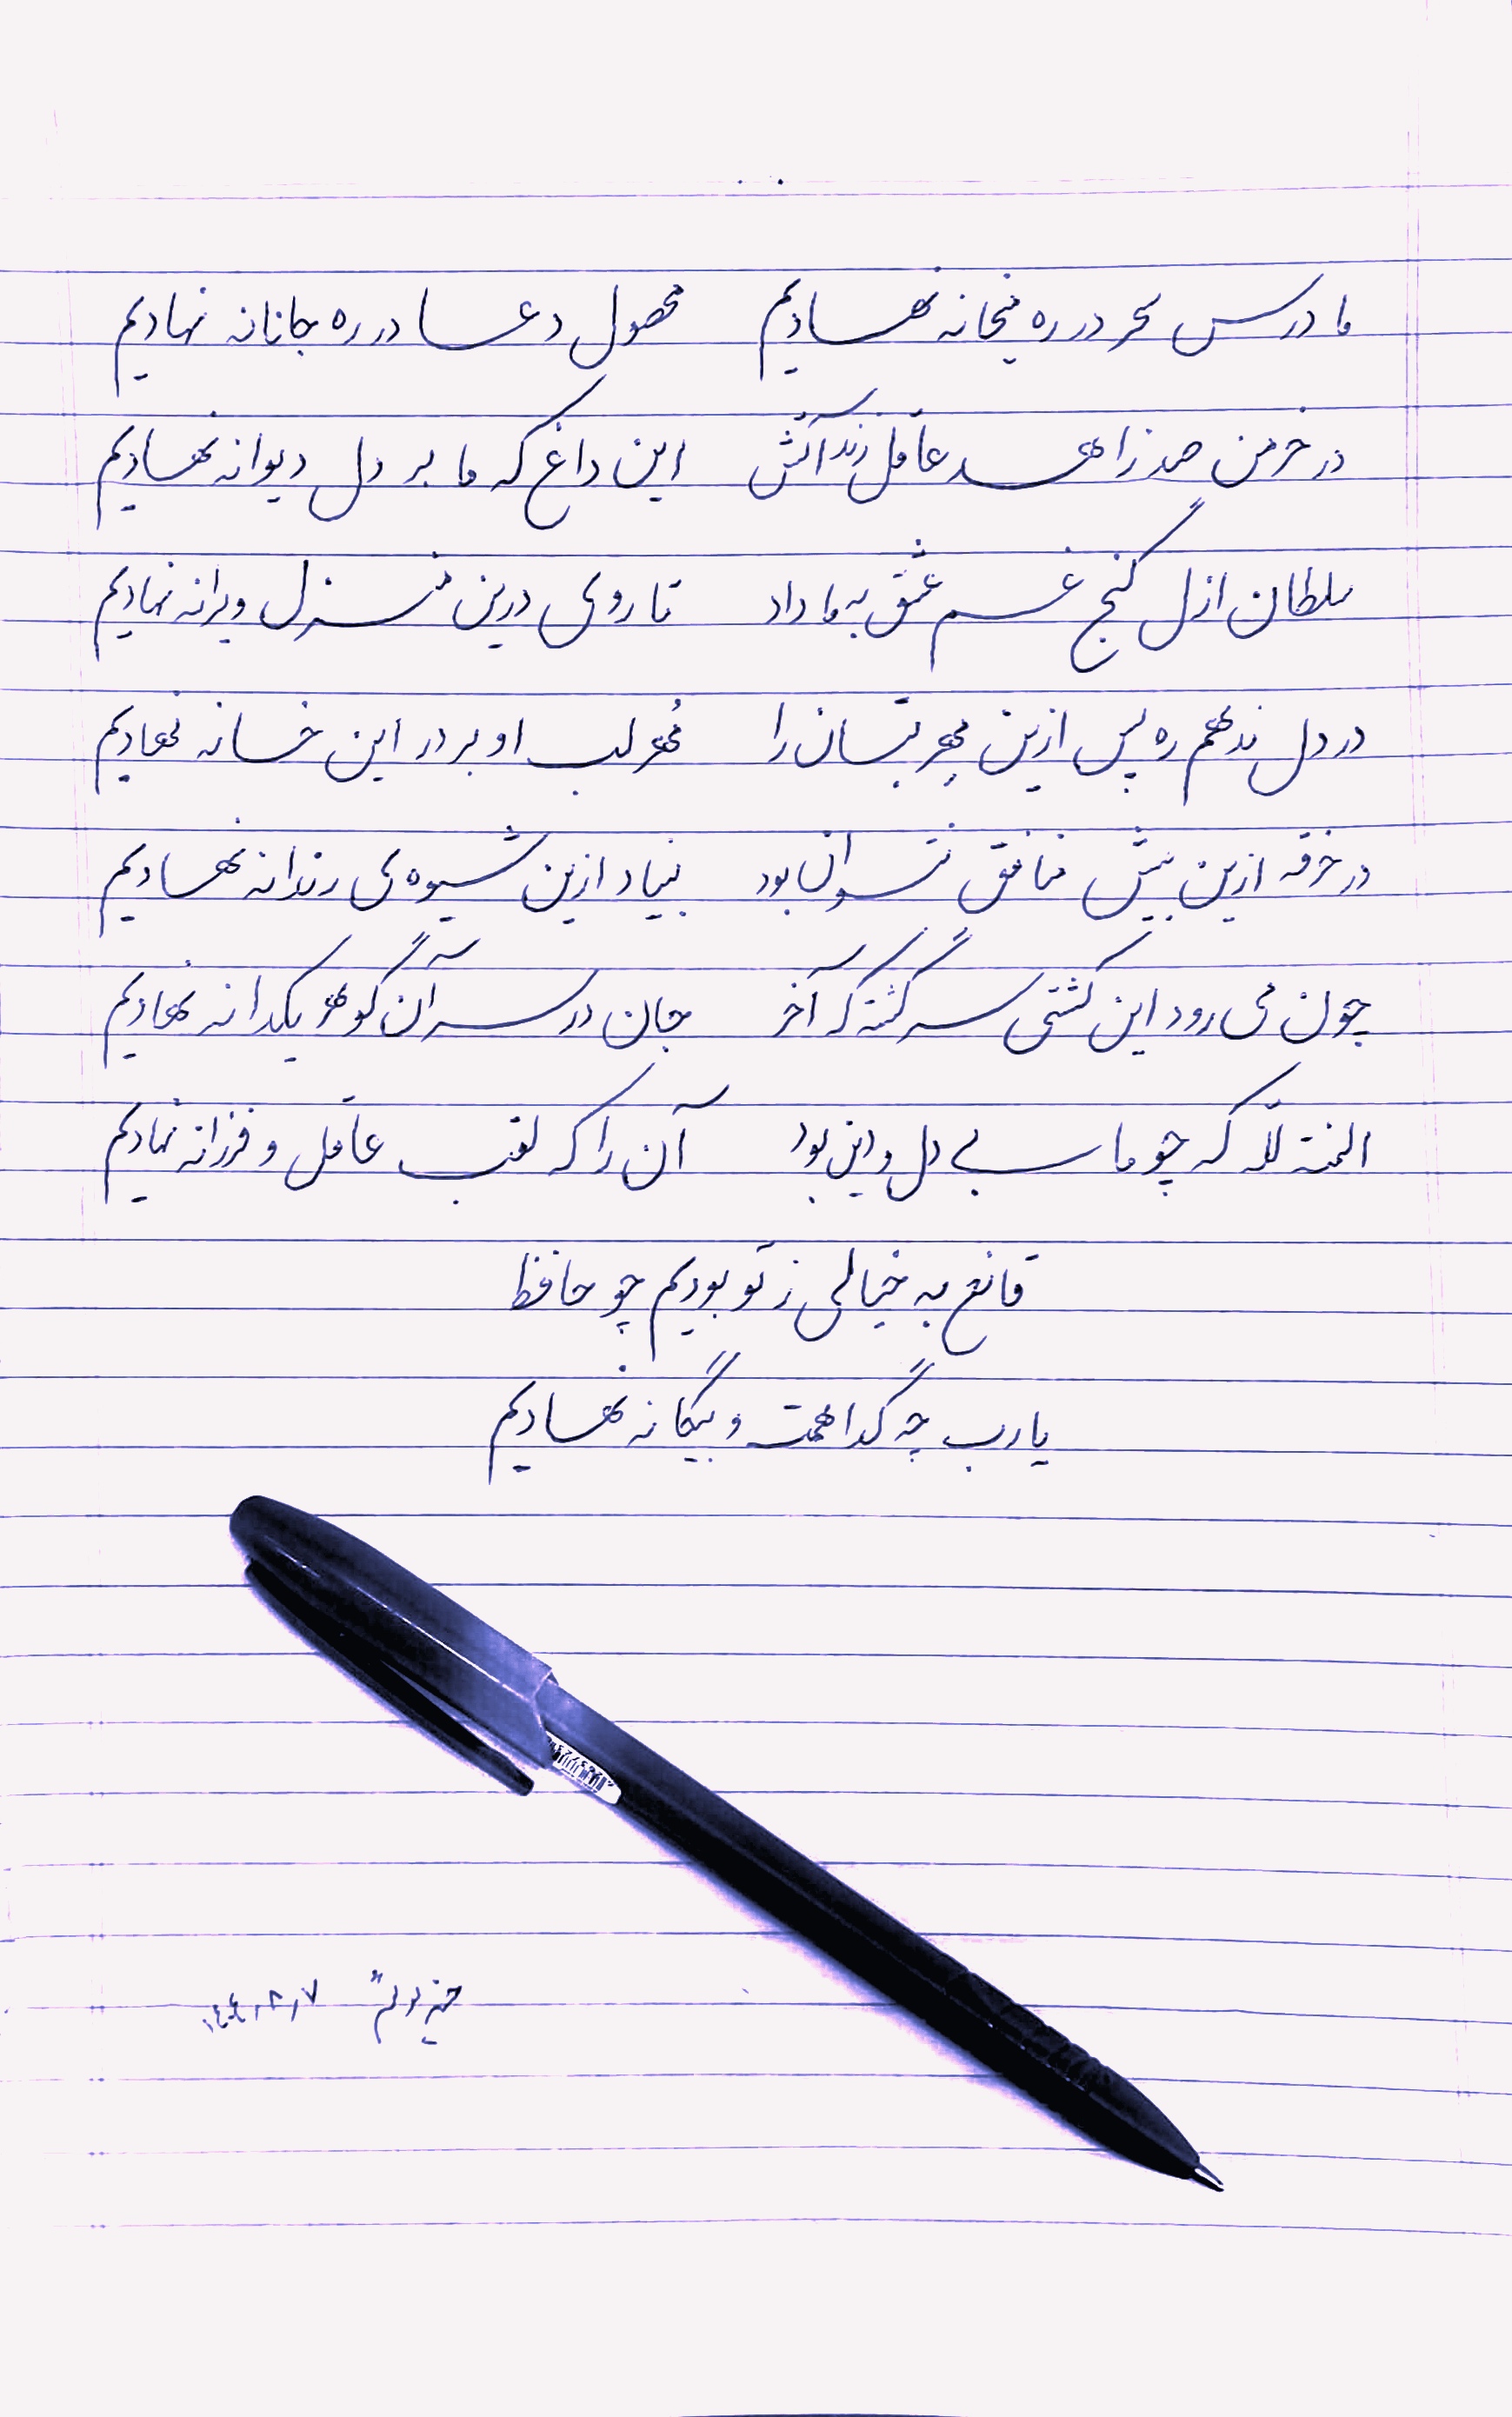 ما درس سحر در ره میخانه نهادیم محصول دعا در ره جانانه نهادیم
در خرمن صد زاهد عاقل زند آتش این داغ که ما بر دل دیوانه نهادیم
سلطان ازل گنج غم عشق به ما داد تا روی درین منزل ویرانه نهادیم
در دل ندهم ره پس ازین مهر بتان را مُهر لب او بر در این خانه نهادیم
در خرقه ازین بیش منافق نتوان بود بنیاد ازین شیوه‌ی رندانه نهادیم
چون می‌رود این کشتی سرگشته که آخر جان در سر آن گوهر یکدانه نهادیم
المنة لله که چو ما بی دل و دین بود آن را که لقب عاقل و فرزانه نهادیم
قانع به خیالی ز تو بودیم چو حافظ
یارب چه گدا همت و بیگانه نهادیم
۱۴۰۴٫۸٫۷